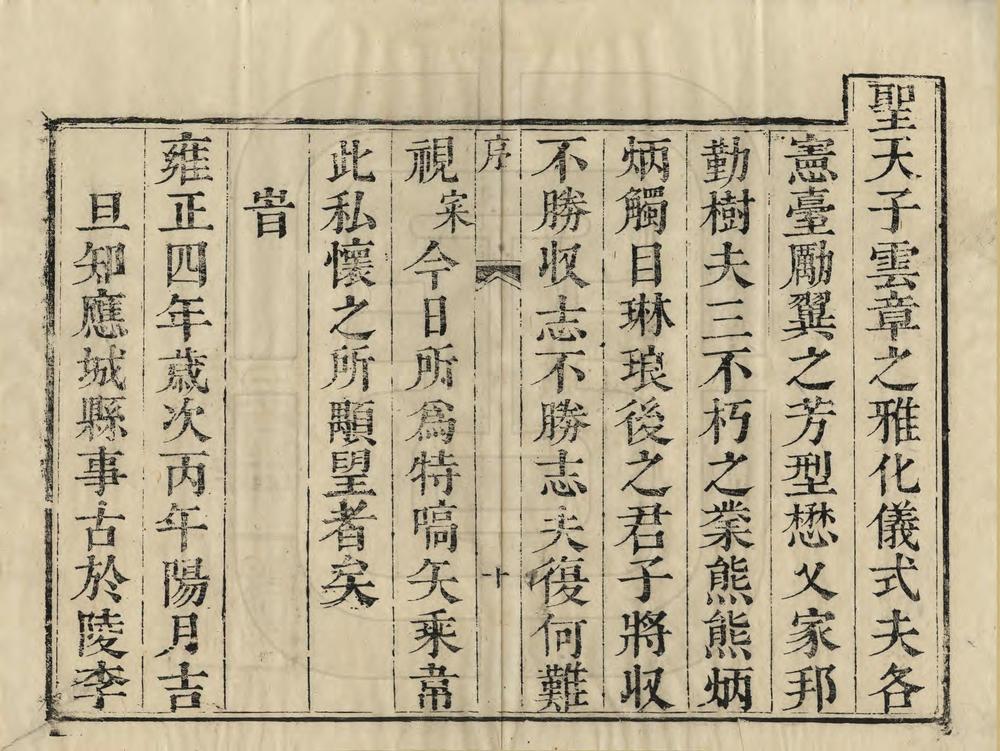 聖天子雲章之雅化儀式夫各
憲臺勵翼之芳型懋乂家邦
勤樹夫三不朽之業熊熊炳
炳觸目琳琅後之君子將収
不勝収志不勝志夫復何難
序 十
視寀今日所爲特嚆矢乘韋
此私懷之所顒望者矣
旹
雍正四年歲次丙午陽月吉
旦知應城縣事古於陵李